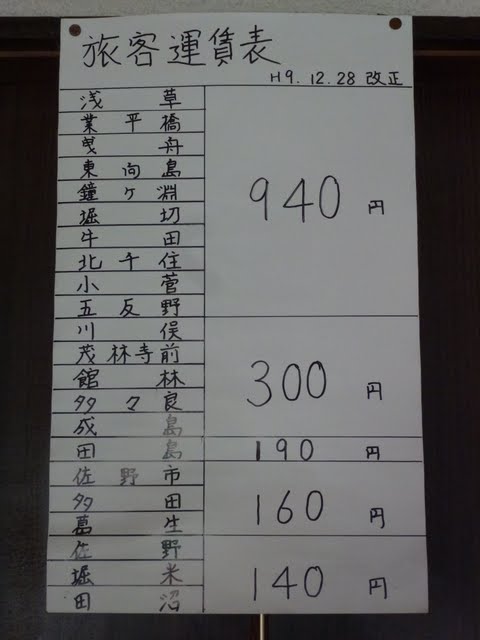 旅客運賃表
H9.12.28 改正
浅草
業平橋
曳舟
東向島
鐘ヶ淵
堀切
牛田
北千住
小菅
五反野
940 円
川俣
茂林寺前
館林
多々良
成島
300 円
田島
190 円
佐野市
多田
葛生
160 円
佐野
堀米
田沼
140 円